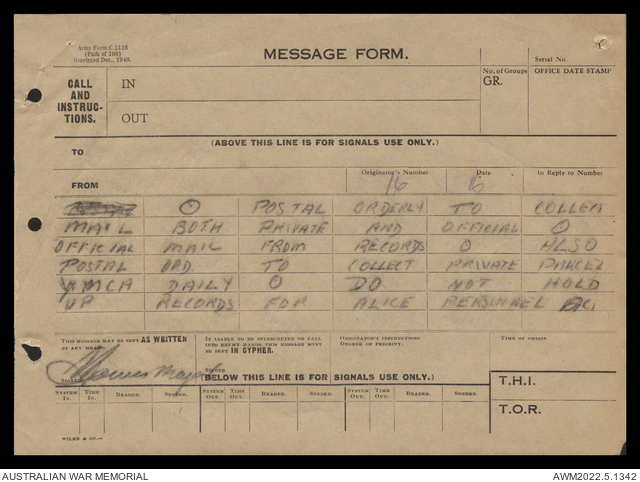 Army Form C.2128
(Pads of 100)
Reprinted Dec., 1940.
MESSAGE FORM.
Serial No.
CALL AND INSTRUCTIONS.
IN
OUT
No. of Groups
GR.
OFFICE DATE STAMP
(ABOVE THIS LINE IS FOR SIGNALS USE ONLY.)
TO
FROM
Originator's Number
16
Date
6
In Reply to Number
O POSTAL ORDERLY TO COLLECT
MAIL BOTH PRIVATE AND OFFICIAL O
OFFICIAL MAIL FROM RECORDS O ALSO
POSTAL ORD. TO COLLECT PRIVATE PARCEL
YMCA DAILY O DO NOT HOLD
UP RECORDS FOR ALICE PERSONNEL
THIS MESSAGE MAY BE SENT AS WRITTEN
BY ANY MEANS.
SIGNED
IF LIABLE TO BE INTERCEPTED OR FALL
INTO ENEMY HANDS, THIS MESSAGE MUST
BE SENT IN CYPHER.
SIGNED
ORIGINATOR'S INSTRUCTIONS
DEGREE OF PRIORITY.
TIME OF ORIGIN.
(BELOW THIS LINE IS FOR SIGNALS USE ONLY.)
T.H.I.
T.O.R.
SYSTEM IN. TIME IN. READER. SENDER. SYSTEM OUT. TIME OUT. READER. SENDER. SYSTEM OUT. TIME OUT. READER. SENDER.
WILKE & CO.—
AUSTRALIAN WAR MEMORIAL
AWM2022.5.1342